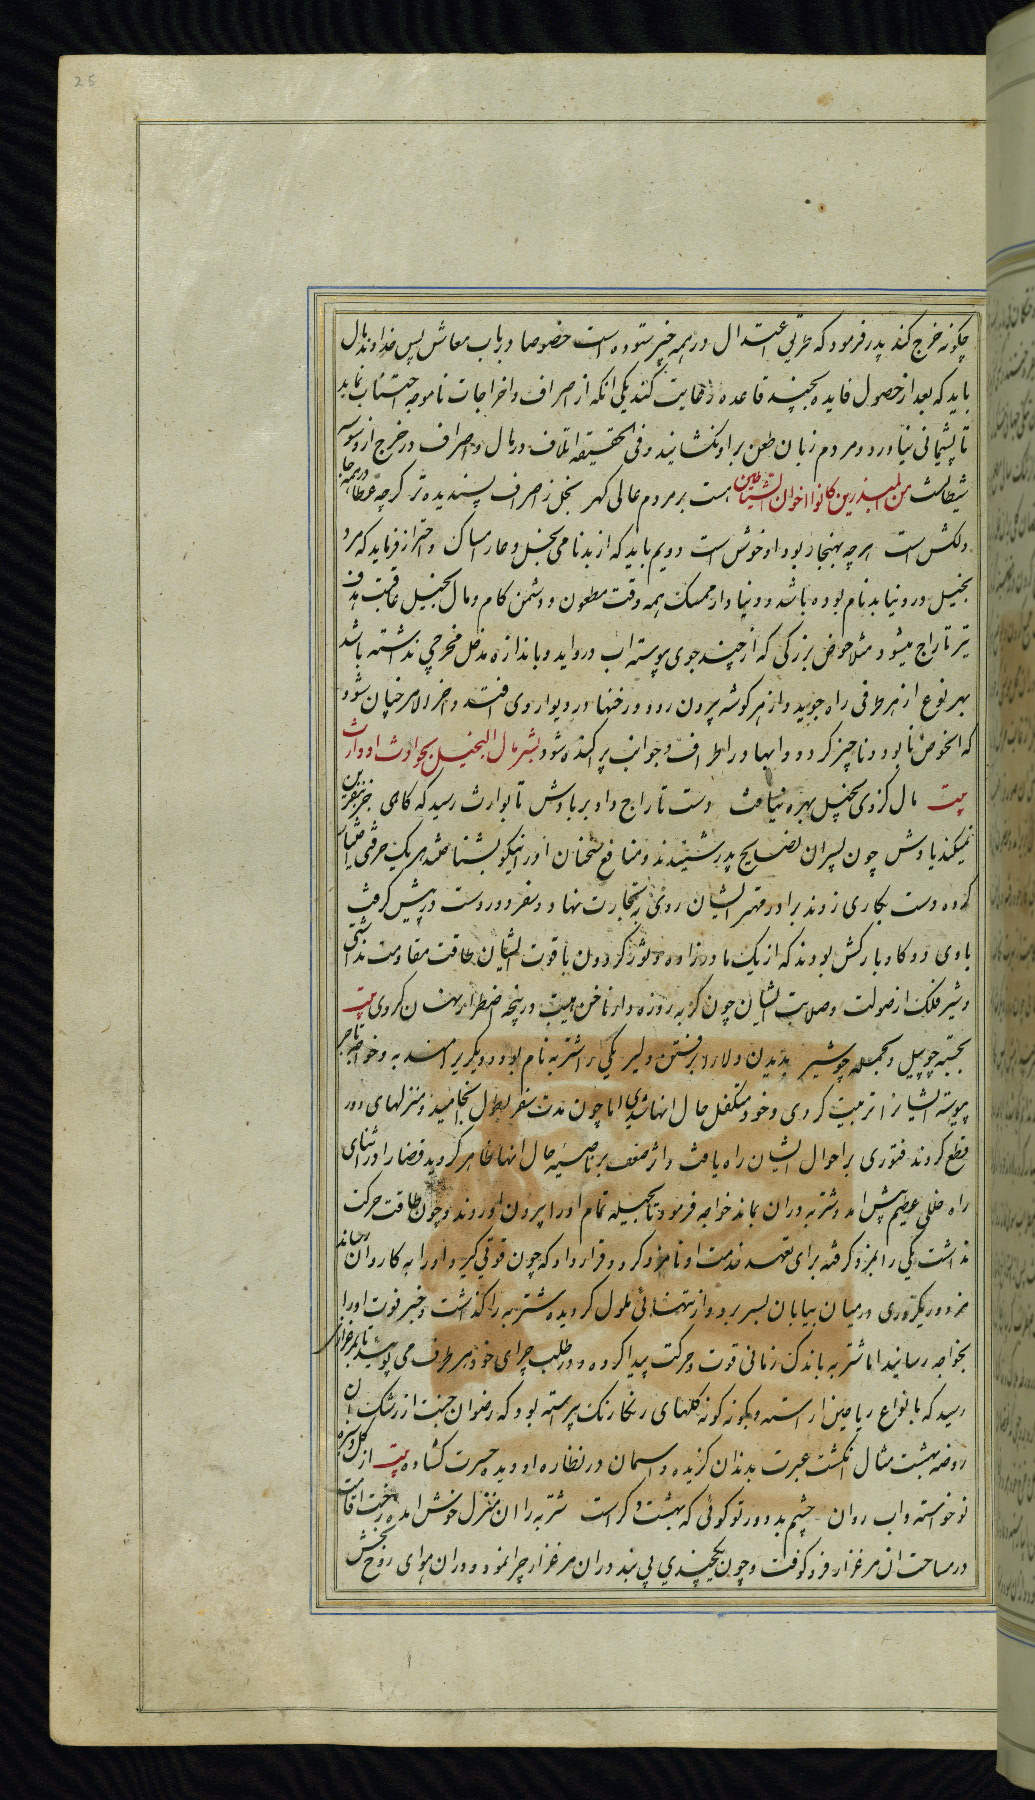 25
چگونه خرج کند پدر فرمود که طریق اعتدال در همه چیز ستوده است خصوصا در باب معاش پس خداوند مال
باید که بعد از حصول فایده بچند قاعده رعایت کند یکی انکه از اصراف و اخراجات ناموجه اجتناب نماید
تا پشیمانی نیاورد و مردم زبان طعن بر او نکشانید و فی الحقیقه اتلاف در مال و اصراف در خرج از وسوسه
شیطانست من المبذرین کانوا اخوان الشیاطین هست بر مردم عالی کهر بخل ز اصرف پسندیده تر کرچه عطا در همه جا
دلکش است هرچه بهنجار بود او خوش است دویم باید که از بدنامی بخل و عار امساک احتراز فرماید که مرد
بخیل در دنیا بدنام بوده باشد و دنیادار ممسک همه وقت مطعون و دشمن کام و مال بخیل عاقبت هدف
تیر تاراج میشود مثلا حوض بزرکی که از چند جوی پیوسته اب در واید و باندازه مدخل مخرجی نداشته باشد
بهر نوع از هر طرفی راه جوید و از هر کوشه بیرون رود و رخنها در دیوار وی افتد و اخر الامر چنان شود
که انحوض نابود و ناچیز کردد و ابها در اطراف و جوانب پراکنده شود بشر مال البخیل بحوادث او وارث
بیت مال کزوی بخیل بهره نیافت دست تاراج داد بر بادش تا بوارث رسید که کاهی جز بنفرین
نمیکند یادش چون پسران نصایح پدر شنیدند و منافع سخنان او را نیکو بشناختند هریک حرفتی اختیار
کرده دست بکاری زدند برادر مهتر ایشان روی به تجارت نهاد و سفر دور دست در پیش کرفت
باوی دو کاو بارکش بودند که از یک مادر زاده و ثور کردون با قوت ایشان طاقت مقاومت نداشتی
و شیر فلک از صولت و صلابت ایشان چون کربه روزه دار ناخن هیبت در پنجه اضطرار پنهان کردی بیت
بجثه چو پیل و بحمله چو شیر بدیدن دلارا برفتن دلیر یکی را شتربه نام بود و دیکر یرا مندبه و خواجه تاجر
پیوسته ایشانرا تربیت کردی و خود متکفل حال انها شدی اما چون مدت سفر بطول انجامید و منزلهای دور
قطع کردند فتوری بر احوال ایشان راه یافت و اثر ضعف بر ناصیه حال انها ظاهر کردید قضا را در اثنای
راه خللی عظیم پیش امد و شتربه در ان بماند خواجه فرمود تا بحیله تمام او را بیرون اوردند و چون طاقت حرکت
نداشت یکی را بمزد کرفته برای تعهد خدمت او نامزد کرد و قرار داد که چون قوتی کیرد او را به کاروان رساند
مزدور یکروزی در میان بیابان بسر برد و از تنهائی ملول کردیده شتربه را کذاشت و خبر فوت او را
بخواجه رسانید اما شتربه باندک زمانی قوت و حرکت پیدا کرده و در طلب چرای خود هر طرف می پوئید تا بمرغزاری
رسید که بانواع ریاحین اراسته و بکونه کونه کلهای رنکارنک پیراسته بود که رضوان جنت از رشک ان
روضه بهشت مثال انکشت عبرت بدندان کزیده و اسمان در نظاره او دیده حیرت کشاده بیت از کل و سبزه
نو خواسته و اب روان چشم بد دور تو کوئی که بهشت دکرست شتربه را ان منزل خوش امده رخت اقامت
در ساحت ان مرغزار فرو کوفت و چون یکچندی بی بند در ان مرغزار چرا نمود و در ان هوای روح بخش